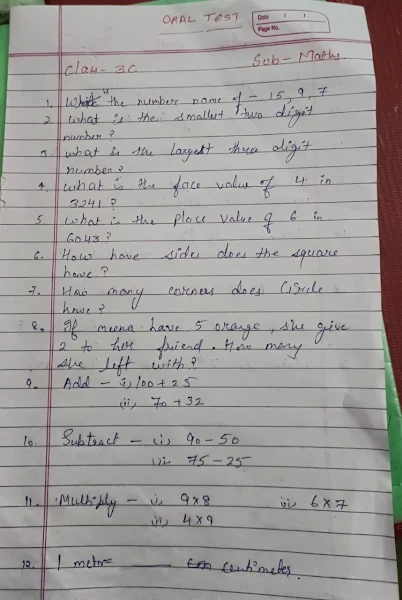 ORAL TEST
Date / /
Page No.
Class- 3C
Sub- Maths.
1. Write the number name of - 15, 9, 7
2. what is the smallest two digit
number ?
3. what is the largest three digit
number ?
4. what is the face value of 4 in
3241 ?
5. what is the place value of 6 in
6043 ?
6. How have sides does the square
have ?
7. How many corners does Circle
have ?
8. If meena have 5 orange, she give
2 to her friend. How many
she left with ?
9. Add - i) 100 + 25
ii) 70 + 32
10. Subtract - (i) 90 - 50
ii) 75 - 25
11. Multiply - i) 9 x 8 ii) 6 x 7
iii) 4 x 9
12. 1 meter= ____ centimeter.